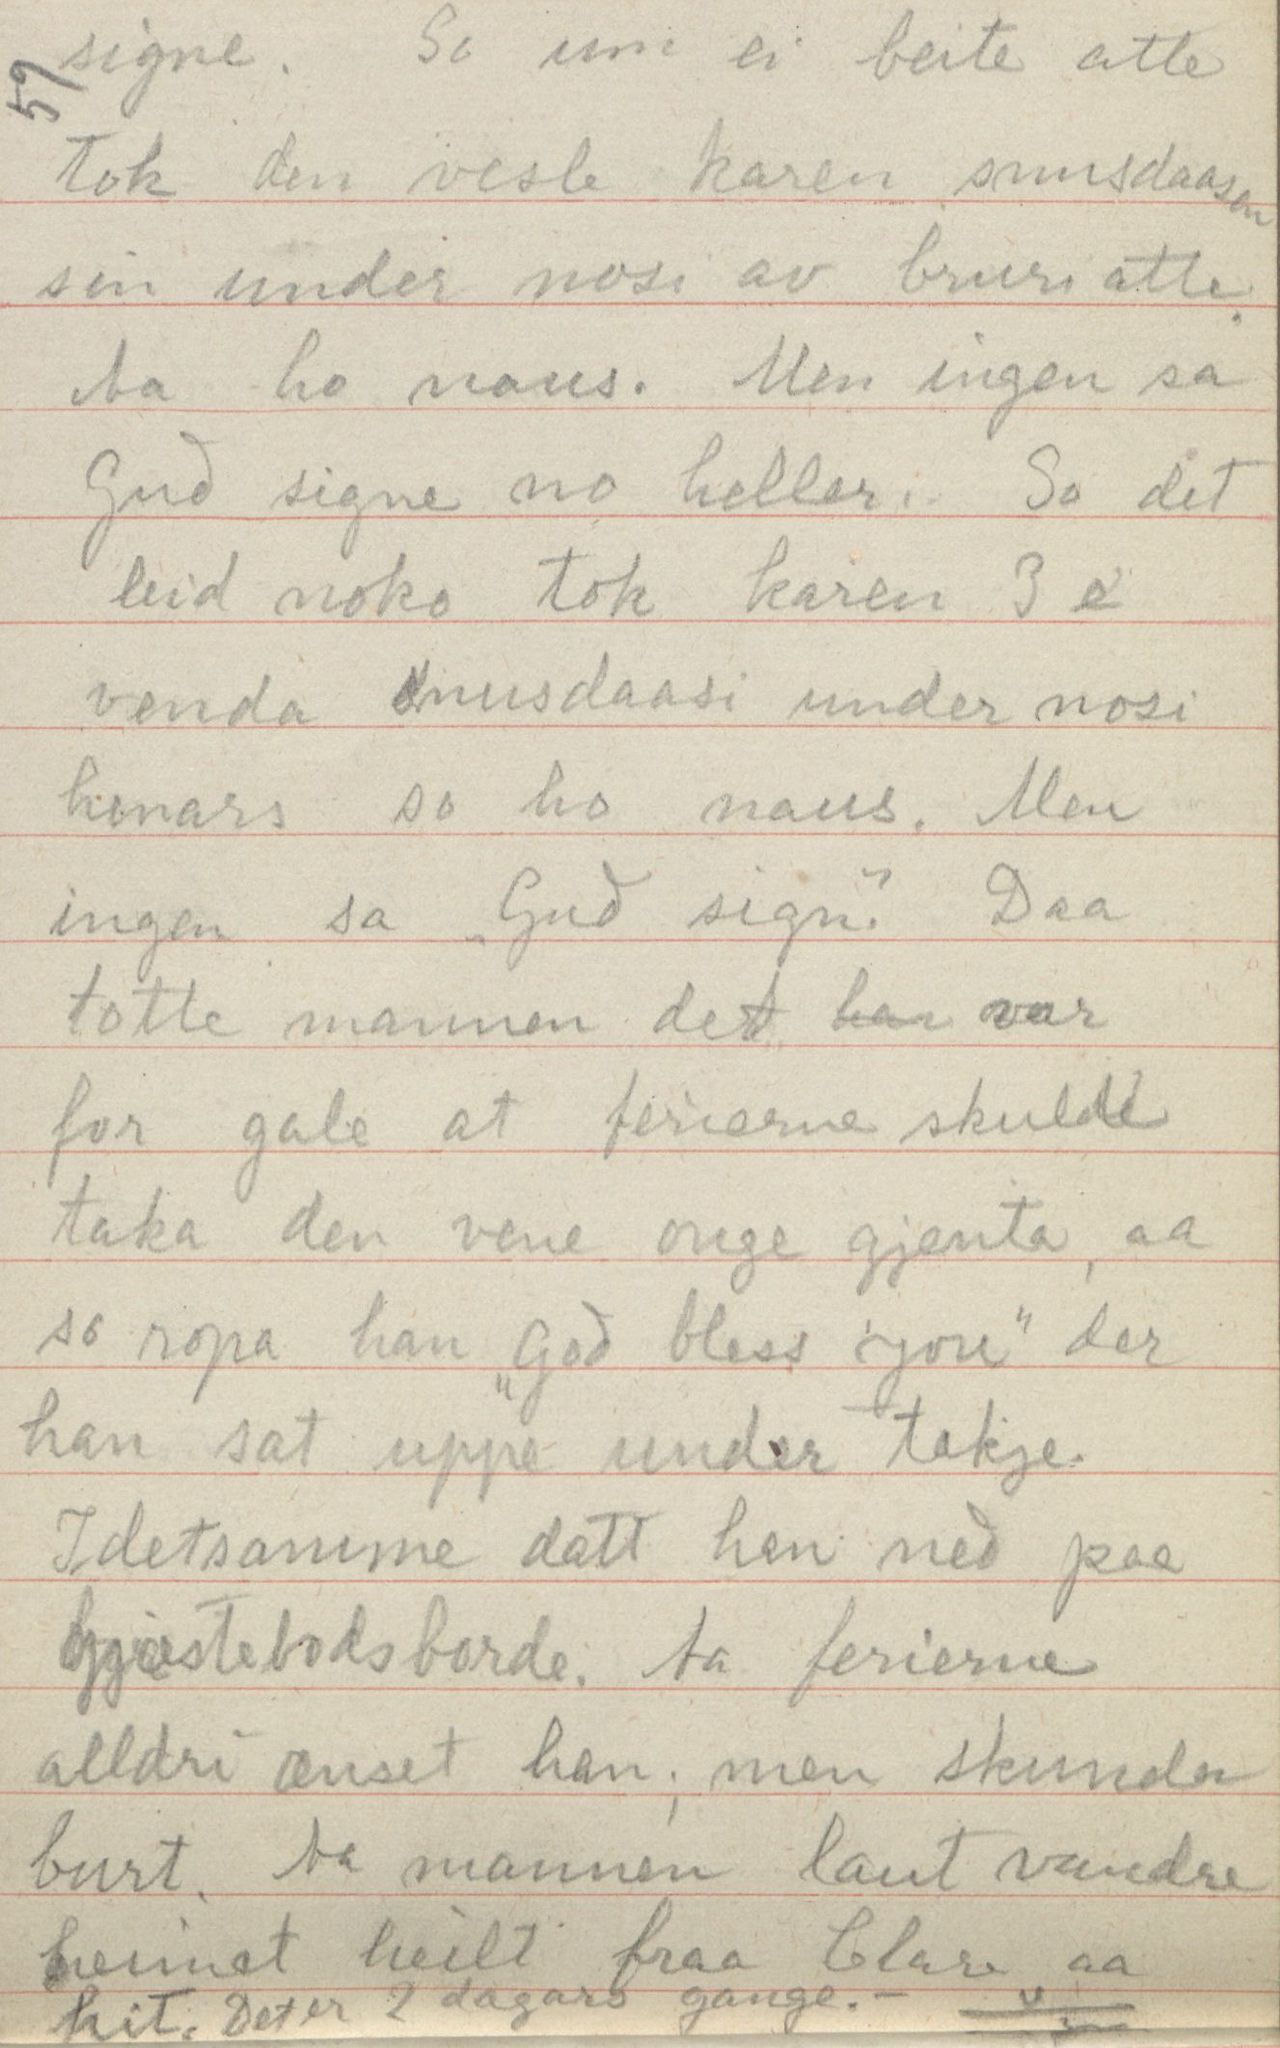 59
signe. So um ei beite atte
tok den vesle karen snusdaasen
sin under nosi av bruri atte.
ta ho naus. Men ingen sa
Gud signe no heller. So det
leid noko tok karen 3 e
venda snusdaasi under nosi
henars so ho naus. Men
ingen sa „Gud sign". Daa
totte mannen det han var
for gale at ferierne skulde
taka den vene onge gjenta, aa
so ropa han „God bless you" der
han sat uppe under tekje.
Idetsamme datt han ned paa
gjestebodsborde. Aa ferierne
alldri ænset han, men skunda
burt. Aa mannen laut vandre
heimat heilt fraa Clare aa
hit. Det er 2 dagars gange.-